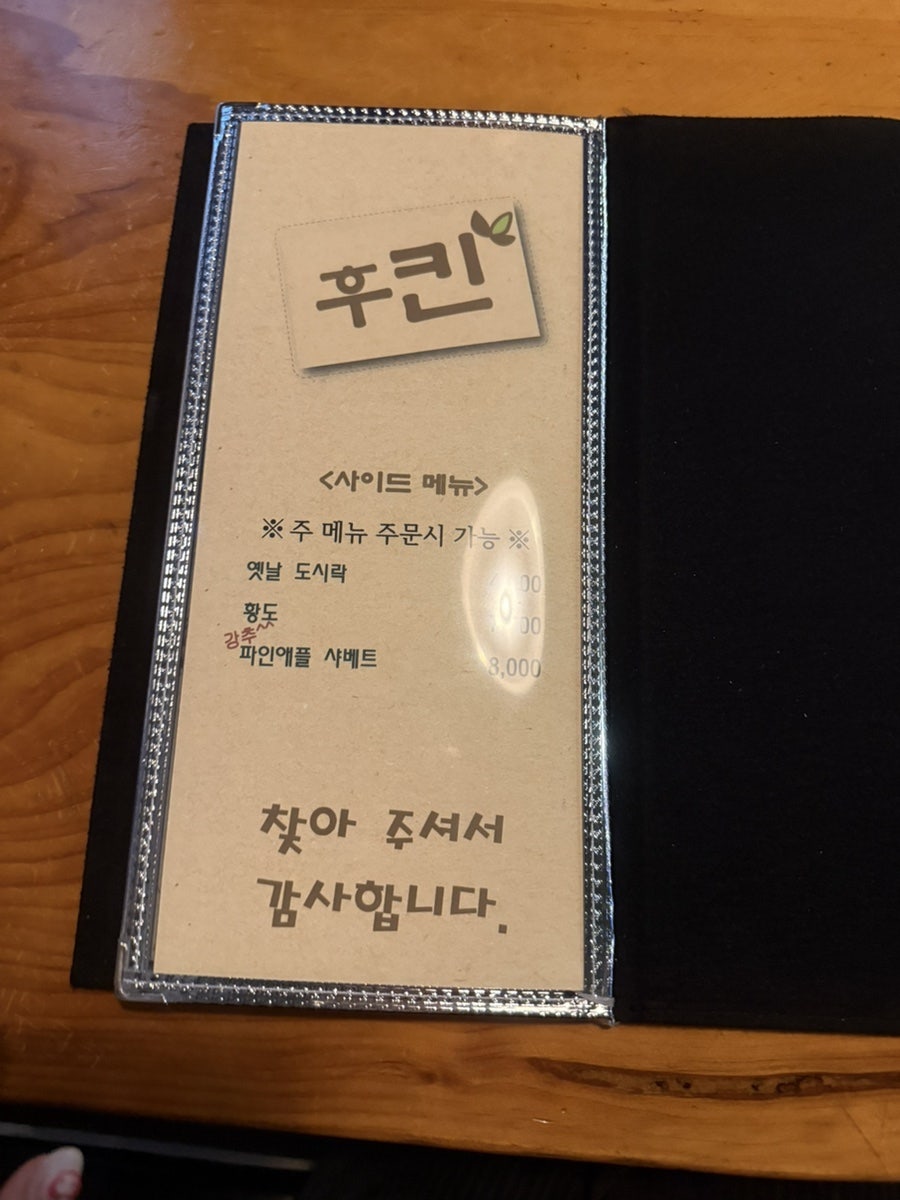 후킨
<사이드 메뉴>
※ 주 메뉴 주문시 가능 ※
옛날 도시락
황도
강추^^
파인애플 샤베트 8,000
찾아 주셔서
감사합니다.